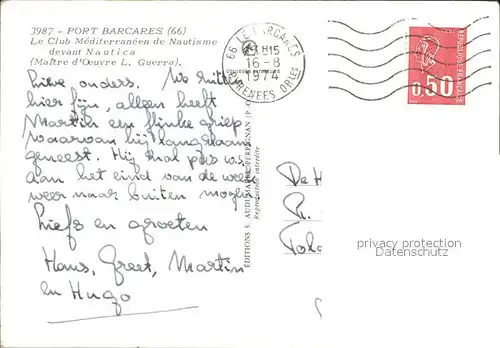 3987 - PORT BARCARES (66)
Le Club Méditerranéen de Nautisme
devant Nautica
(Maître d'Oeuvre L. Guerra).
Lieve onders. We zitten
hier fijn, alleen heeft
Martin een flinke griep
waarvan hij langzaam
geneest. Hij zal pas vs.
aan het eind van de week
weer naar buiten mogen
Liefs en groeten
Hans, Greet, Martin
en Hugo
66 LE BARCARES
H15
16-8
1974
PYRENEES ORLES
0,50
EDITIONS S. AUDUMARES, PERPIGNAN
Reproduction interdite
De H
P.
privacy protection
Datenschutz